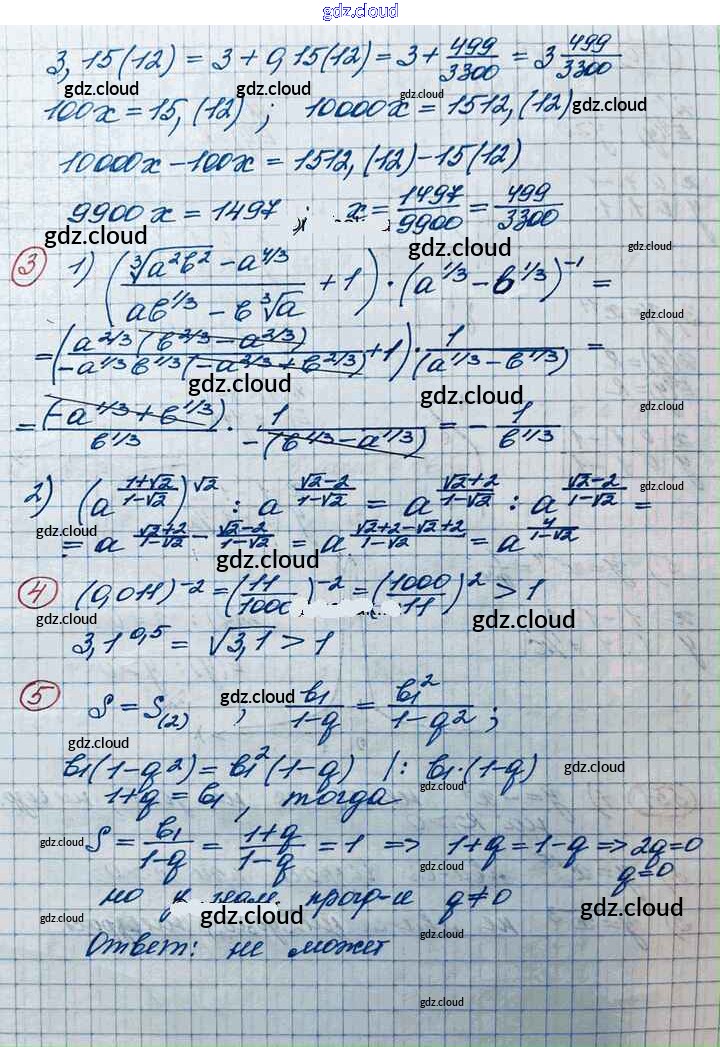 gdz.cloud
gdz.cloud
3,15(12) = 3 + 0,15(12) = 3 + 499/3300 = 3 499/3300
gdz.cloud gdz.cloud gdz.cloud
100x = 15,(12) ; 10000x = 1512,(12) gdz.cloud
10000x − 100x = 1512,(12) − 15(12)
9900x = 1497 ; x = 1497/9900 = 499/3300
gdz.cloud gdz.cloud gdz.cloud
3 1) ((∛(a²b²) − a^(4/3))/(ab^(1/3) − b∛a) + 1) · (a^(1/3) − b^(1/3))^(−1) =
gdz.cloud
= (a^(2/3)(b^(2/3) − a^(2/3))/(−a^(1/3)b^(1/3)(−a^(2/3) + b^(2/3))) + 1) · 1/(a^(1/3) − b^(1/3)) =
gdz.cloud gdz.cloud gdz.cloud
= (−a^(1/3) + b^(1/3))/b^(1/3) · 1/(−(b^(1/3) − a^(1/3))) = − 1/b^(1/3)
2) (a^((1+√2)/(1−√2)))^√2 : a^((√2−2)/(1−√2)) = a^((√2+2)/(1−√2)) : a^((√2−2)/(1−√2)) =
gdz.cloud gdz.cloud
= a^((√2+2)/(1−√2) − (√2−2)/(1−√2)) = a^((√2+2−√2+2)/(1−√2)) = a^(4/(1−√2))
gdz.cloud gdz.cloud
4 (0,011)^(−2) = (11/1000)^(−2) = (1000/11)² > 1
gdz.cloud gdz.cloud
3,1^0,5 = √3,1 > 1
gdz.cloud
5 S = S(2) gdz.cloud ; b₁/(1−q) = b₁²/(1−q²) ;
gdz.cloud gdz.cloud
b₁(1−q²) = b₁²(1−q) |: b₁·(1−q)
gdz.cloud gdz.cloud
1+q = b₁, тогда
gdz.cloud
S = b₁/(1−q) = (1+q)/(1−q) = 1 => 1+q = 1−q => 2q=0
gdz.cloud gdz.cloud
q=0
но у геом прогр-и q≠0
gdz.cloud gdz.cloud gdz.cloud
Ответ: не может
gdz.cloud
gdz.cloud